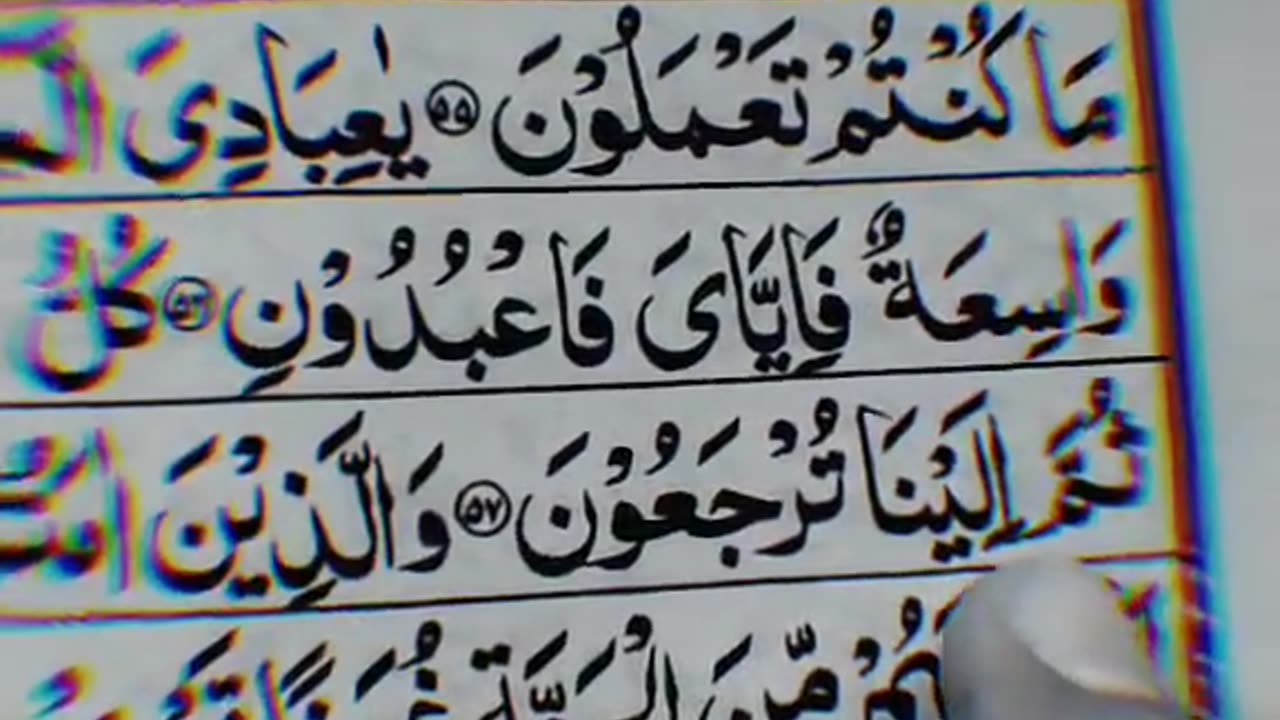 مَا كُنْتُمْ تَعْمَلُوْنَ ۝۵۵ يٰعِبَادِىَ
وَاسِعَةٌ فَاِيَّاىَ فَاعْبُدُوْنِ ۝۵۶ كُلُّ
ثُمَّ اِلَيْنَا تُرْجَعُوْنَ ۝۵۷ وَالَّذِيْنَ
مِّنَ